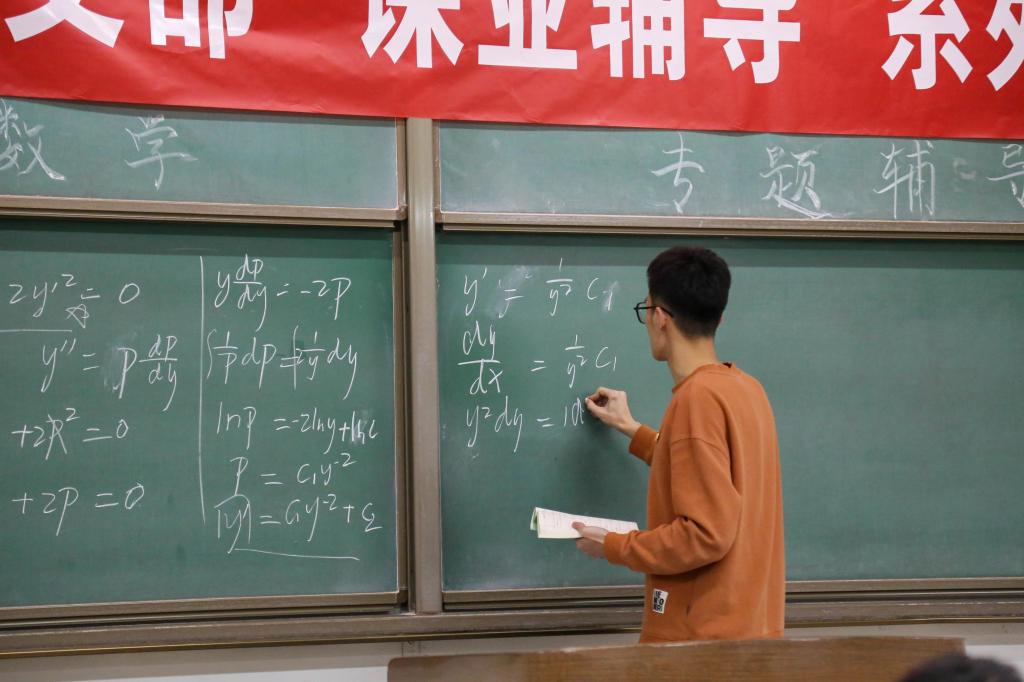 支部 课业辅导 系列
数学
专题辅导
2y'² = 0
y'' = p dp/dy
+2p² = 0
+2p = 0
y dp/dy = -2p
∫ 1/p dp = ∫ 2 1/y dy
lnp = -2lny + lnc
P = C₁y⁻²
|y| = C₁y⁻² + C₂
y' = 1/y² C₁
dy/dx = 1/y² C₁
y²dy = 1d